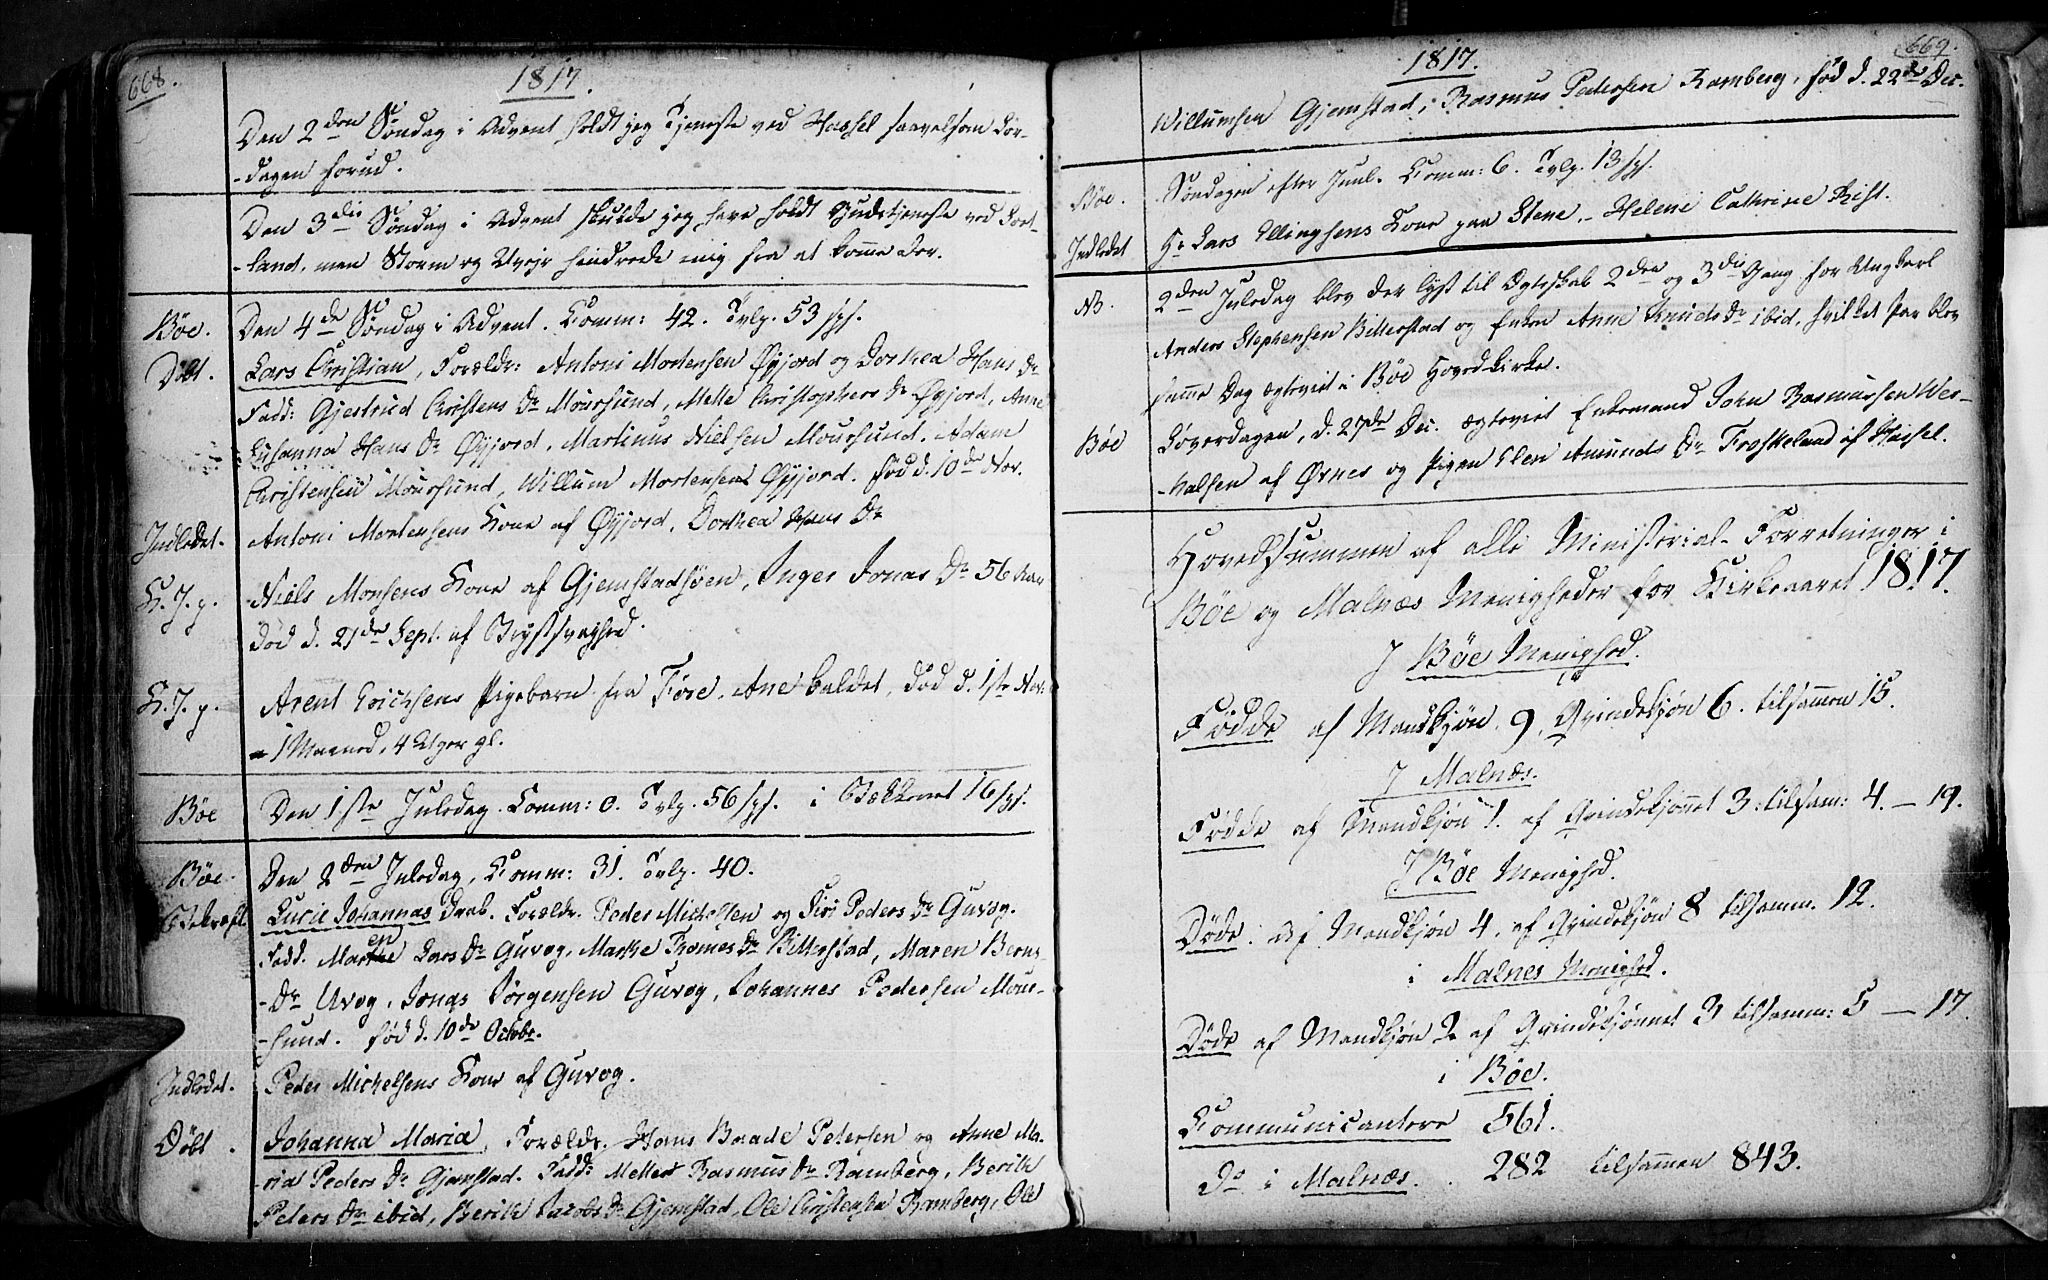 668.
1817.
Den 2den Søndag i Advent holdt jeg Tjeneste ved Hassel saavelsom Lør-
-dagen forud.
Den 3die Søndag i Advent skulde jeg have holdt Gudstjeneste ved Lang-
-land, men Storm og Uvejr hindrede mig fra at komme der.
Bøe. Den 4de Søndag i Advent. Comm: 42. Tvlg. 53 sh.
Døbt. Lars Christian, Forældr: Antoni Mortensen Øyjord og Dorthea Hans Dr
Fadd: Gjertrud Christens Dr Moursund, Mette Christophers Dr Øyjord, Anne
Susanna Hans Dr Øyjord, Martinus Nielsen Moursund, Adam
Christensen Moursund, Willum Mortensen Øyjord. fød d. 10de Nov.
Indledet. Antoni Mortensens Kone af Øyjord, Dorthea Hans Dr
K. J. p. Niels Monsens Kone af Gjemstadsøen, Inger Jonas Dr 56 Aar
død d. 21de Sept. af Brystsvaghed.
K. J. p. Arent Erichsens Pigebarn fra Føre, Ane kaldet, død d. 1ste Nov.
1 Maaned, 4 Uger gl.
Bøe Den 1ste Juledag. Comm: 0. Tvlg. 56 sh. i Bækkenet 16 sh.
Bøe. Den 2den Juledag, Comm: 31. Tvlg. 40.
Lucie Johannas Daab. Forældr. Peder Michelsen og Siri Peders Dr Guvog.
Fadd. Maren Lars Dr Guvog, Marthe Thomes Dr Bitterstad, Maren Bernt
-Dr Uvog, Jonas Jørgensen Guvog, Johannes Pedersen Mour-
-sund. fød d. 10de Octobr.
Indledet. Peder Michelsens Kone af Guvog.
Døbt. Johanna Maria, Forældr. Hans Baade Petersen og Anne Ma-
-ria Peders Dr Gjemstad. Fadd: Mette Rasmus Dr Ramberg, Berith
Peters Dr ibid, Berith Jacobs Dr Gjemstad, Ole Christensen Ramberg, Ole
669.
1817.
Willumsen Gjemstad, Rasmus Pedersen Ramberg, fød d. 22de Dec.
Bøe. Søndagen efter Juul. Comm: 6. Tvlg. 13 sh.
Indledet Hr Lars Ellingsens Kone paa Stene, - Helene Cathrine Rist.
NB. 2den Juledag blev der lyst til Ægteskab 2den og 3die Gang for Ungkarl
Anders Stephensen Bitterstad og Enken Anne Knuds Dr ibid, hvilket Par blev
samme Dag ægteviet i Bøe Hovedkirke.
Bøe Løverdagen, d. 27de Dec: ægteviet Enkemand John Rasmussen Wes-
-halsen af Ørnes og Pigen Elen Amunds Dr Froskeland af Hassel.
Hovedsummen af alle Ministerial-Forretninger i
Bøe og Malnæs Menigheder for Kirkeaaret 1817
J Bøe Menighed.
Fødde af Mandkjøn 9, Qvindekjøn 6. tilsammen 15.
J Malnæs.
Fødde af Mandkjøn 1. af Qvindekjønnet 3: tilsam: 4. — 19.
J Bøe Menighed.
Døde: af Mandkjøn 4, af Qvindekjøn 8 tilsamm. 12.
i Malnes Menighed.
Døde af Mandkjøn 2 af Qvindekjønnet 3 tilsamm: 5 — 17.
i Bøe.
Communicantere 561.
Do i Malnæs. 282 tilsammen 843.